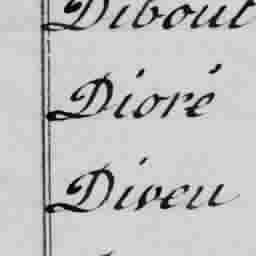 Dibout
Dioré
Diveu